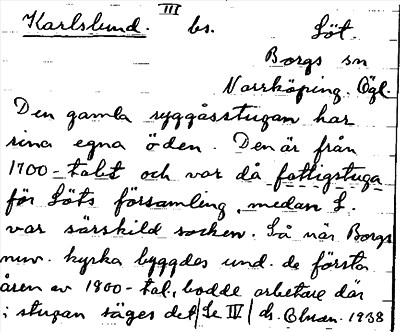 III
Karlslund. bs. Löt.
Borgs sn
Norrköping. Ögl.
Den gamla ryggåsstugan har
sina egna öden. Den är från
1700-talet och var då fattigstuga
för Löts församling, medan L.
var särskild socken. Så när Borgs
nuv. kyrka byggdes und. de första
åren av 1800-tal, bodde arbetare där
i stugan säges det/Se IV/ 1938